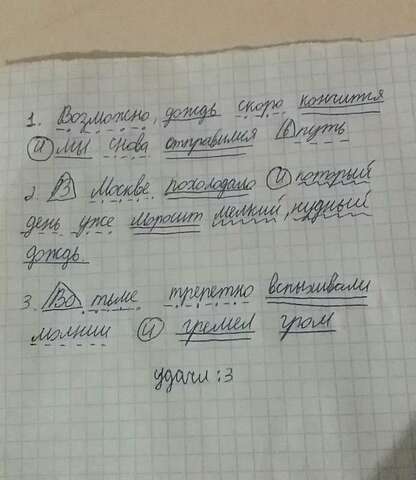 1. Возможно, дождь скоро кончится
и мы снова отправимся в путь
2. В Москве похолодало и который
день уже моросит мелкий, нудный
дождь.
3. Во тьме трепетно вспыхивали
молнии и гремел гром
удачи :3